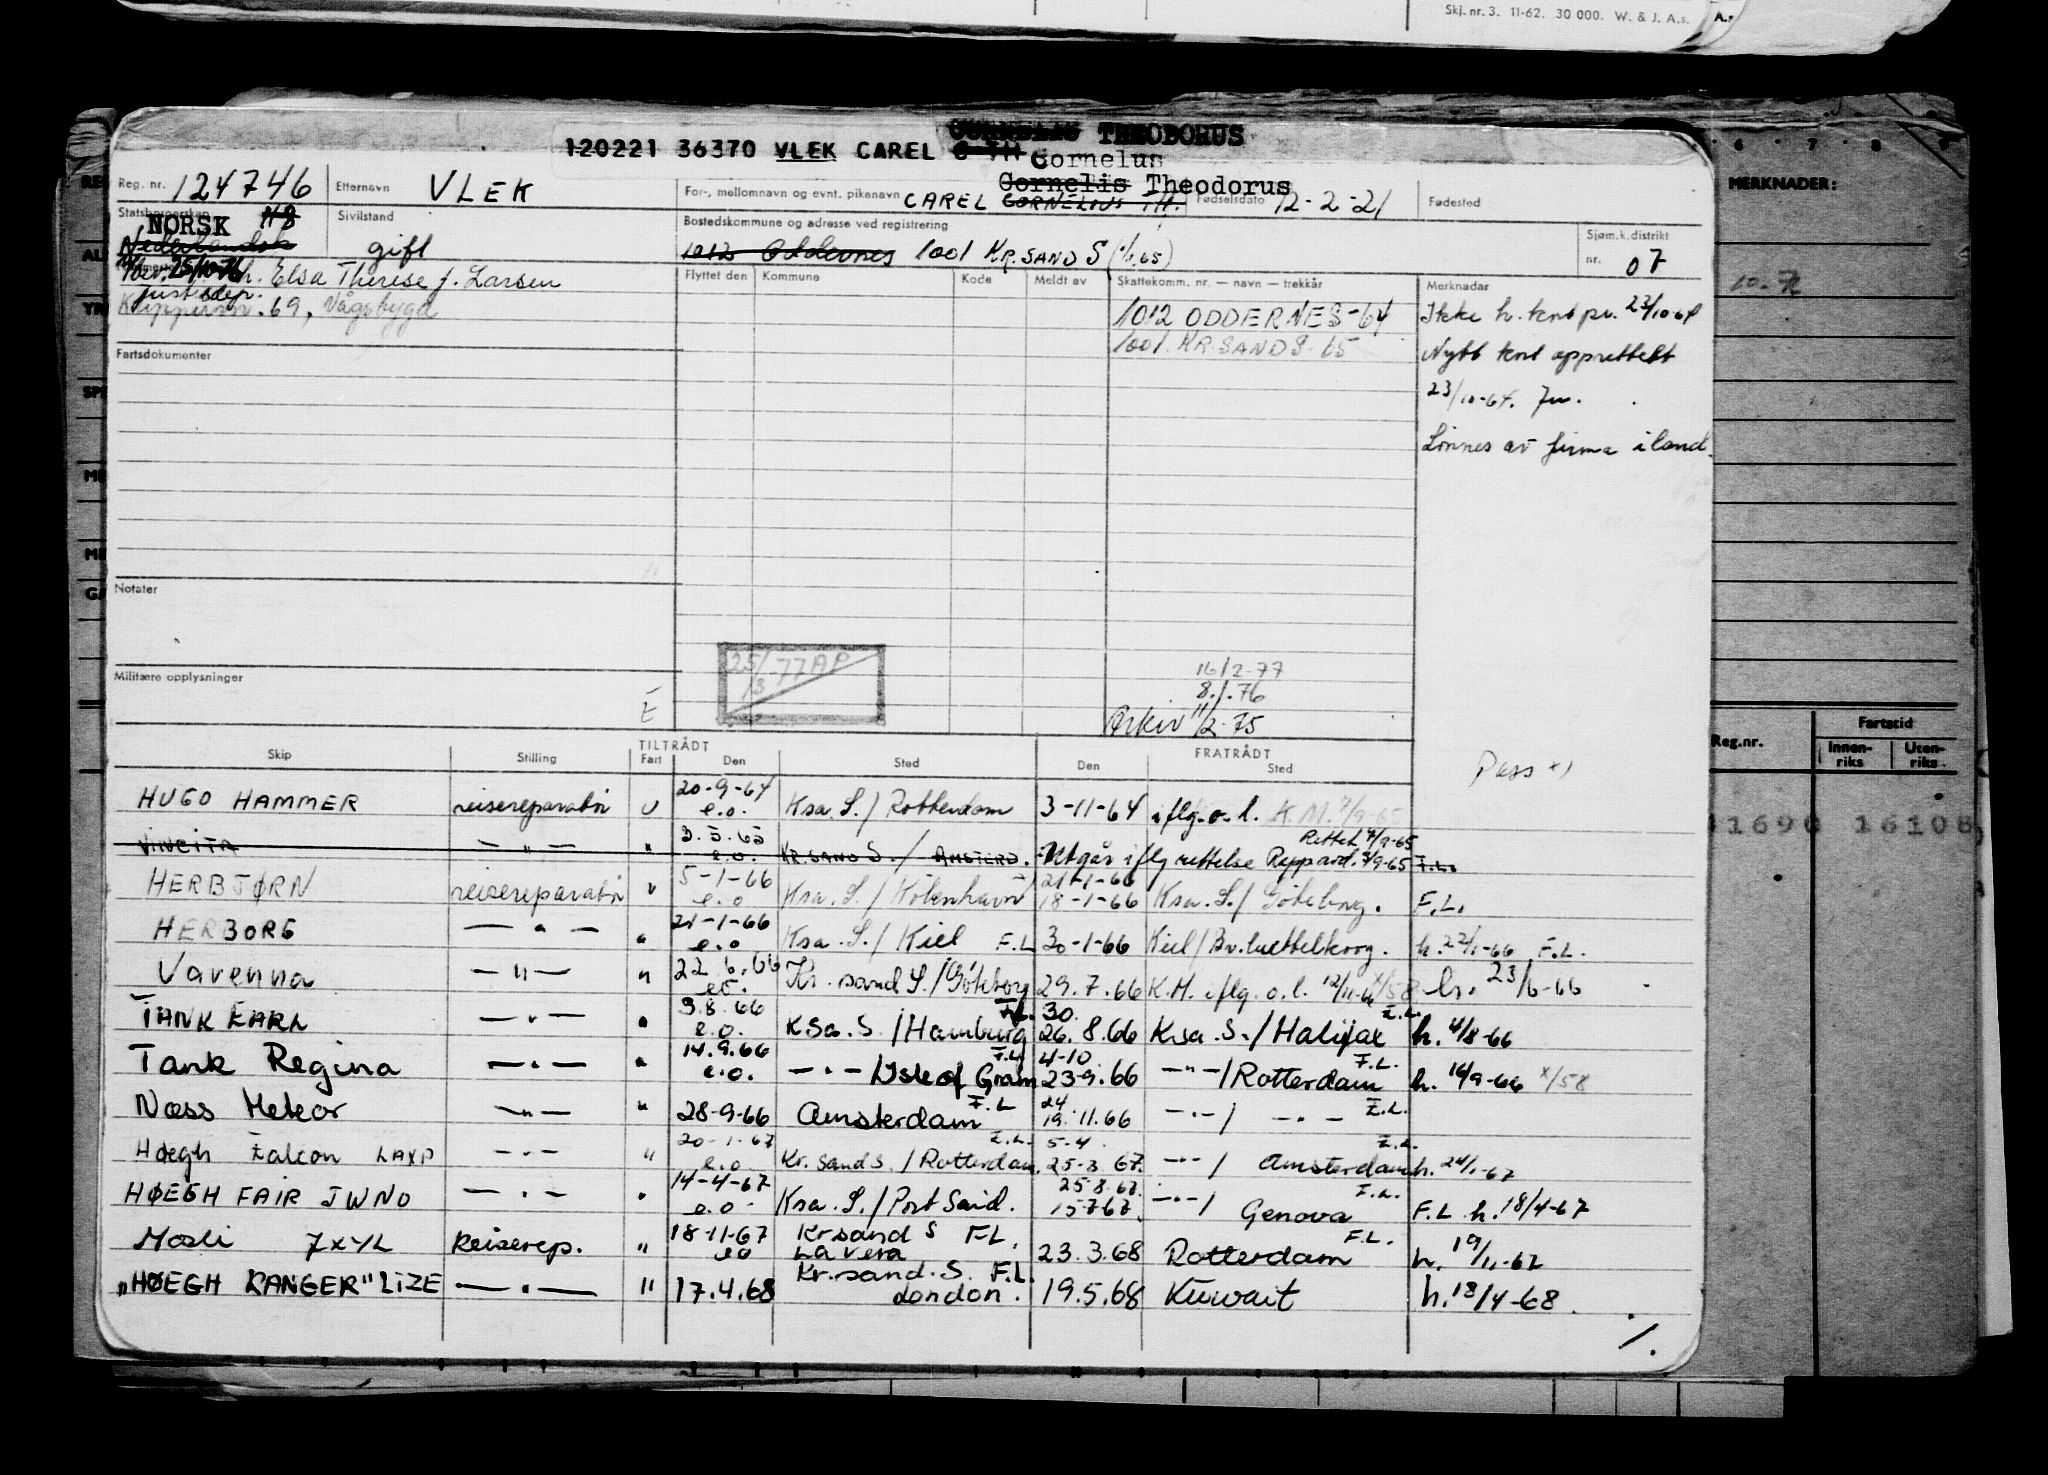 Skj. nr. 3. 11-62. 30 000. W. & J. A.s.
MERKNADER:
120221 36370 VLEK CAREL C TH CORNELIS THEODORUS
Cornelus
Cornelis Theodorus
Reg. nr. 124746 Etternavn VLEK For-, mellomnavn og evnt. pikenavn CAREL CORNELIUS TH. Fødselsdato 12-2-21 Fødested
Statsborgerskap NORSK Nederlandsk
Sivilstand gift
Bostedskommune og adresse ved registrering
1012 Oddernes 1001 KR.SAND S
Sjøm.k.distrikt nr. 07
25/10-76 Elsa Therese f. Larsen
Justisdep.
69, Vågsbygd
Flyttet den Kommune Kode Meldt av Skattekomm. nr. — navn — trekkår Merknader
1012 ODDERNES-64
1001 KR.SAND S-65
Ikke h. kort pr. 23/10-64
Nytt kort opprettett
23/10-64.
Lønnes av firma i land.
Fartsdokumenter
Notater
Militære opplysninger
16/2-77
8/1-76
Arkiv 11/2-75
Reg.nr. Fartstid
Innen-riks Uten-riks
TILTRÅDT FRATRÅDT
Skip Stilling Fart Den Sted Den Sted
Pass x)
HUGO HAMMER reisereparatør U 20-9-64 e.o. Ksa. S./ Rotterdam 3-11-64 iflg. o.l. K.M. 7/9-65
Rettet 7/9-65
VINCITA — " — " 3.5.65 e.o. KR.SAND S./ AMSTERD. Utgår iflg rettelse Rappord. 7/9-65 F.L.
HERBJØRN reisereparatør " 5-1-66 e.o Ksa. S./ København 21-1-66 18-1-66 Ksa. S./ Göteborg. F.L.
HERBORG — " — " 21-1-66 e.o Ksa. S./ Kiel F.L 30-1-66 Kiel/ h. 22/1-66 F.L.
Varenna — " — " 22.6.66 eo. Kr.sand S./Göteborg 29.7.66 K.M. iflg. o.l. 12/11-66 x/58 h. 23/6-66
TANK EARL — " — " 3.8.66 e.o. Ksa. S./Hamburg F.L. 30. 26.8.66 Ksa. S./ Halifax F.L. h. 4/8-66
Tank Regina — " — " 14.9.66 e.o. — " —/Isle of Grain F.L. 4-10 23.9.66 — " —/Rotterdam F.L. h. 16/9-66 x/58
Næss Meteor — " — " 28-9-66 Amsterdam F.L 24 19.11.66 — " —/ — " — F.L.
Høegh Falcon LAXP — " — " 20-1-67 e.o. Kr.sand S./Rotterdam F.L. 5-4. 25-3 67. — " —/ Amsterdam F.L. h. 24/1-67
HØEGH FAIR JWNO — " — " 14-4-67 e.o. Ksa. S./ Port Said. 25.8.67. 15-7-67. — " —/ Genova F.L. F.L h. 18/4-67
Mosli JXYL Reiserep. " 18-11-67 eo Krsand S F.L. Lavera 23.3.68 Rotterdam F.L. h. 19/11-67
"HØEGH RANGER" LIZE — " — " 17.4.68 Kr.sand. S. F.L. London. 19.5.68 Kuwait h. 18/4-68.
./.